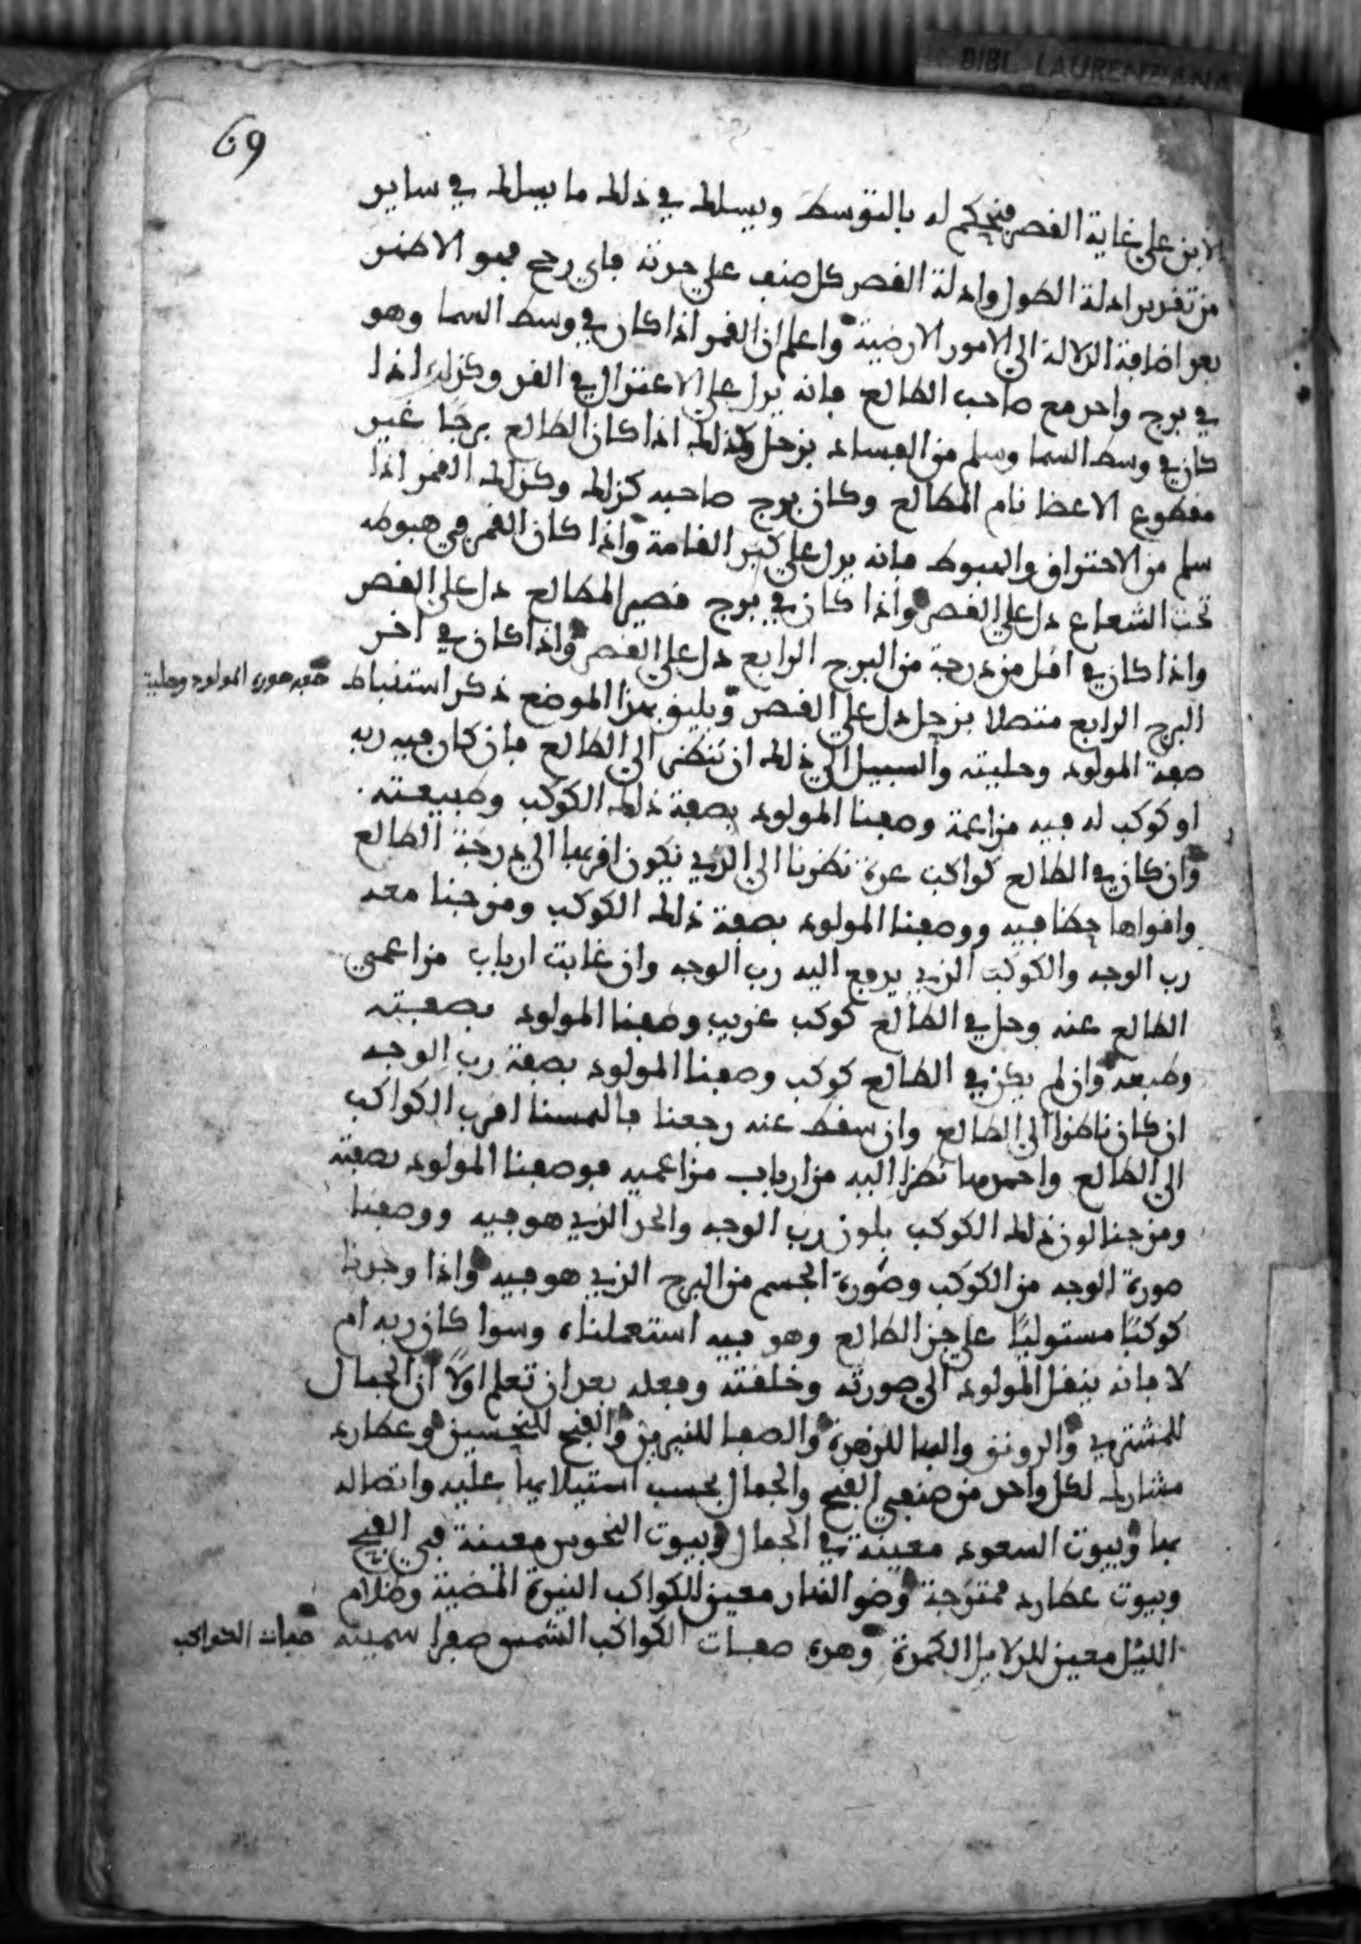 BIBL. LAURENZIANA
69
الابن على غاية القصر فيحكم له بالتوسط ويسلك في ذلك ما يسلك في ساير
من تقرير ادلة الطول وادلة القصر كل صنف على حدته فاي رجح فهو الاظهر
بعد اضافة الدلالة الى الامور الارضية واعلم ان القمر اذا كان في وسط السما وهو
في برج واحد مع صاحب الطالع فانه يدل على الاعتدال في القد وكذلك اذا
كان في وسط السما وسلم من الفساد بزحل وكذلك اذا كان الطالع برجًا غير
مقطوع الاعضا تام المطالع وكان برج صاحبه كذلك وكذلك القمر اذا
سلم من الاحتراق والهبوط فانه يدل على كبر القامة واذا كان القمر في هبوطه
تحت الشعاع دل على القصر واذا كان في برج قصير المطالع دل على القصر
واذا كان في اقل من درجة من البرج الرابع دل على القصر واذا كان في اخر
البرج الرابع متصلا بزحل دل على القصر ويليق بهذا الموضع ذكر استنباط
صفة صورة المولود وحليته
صفة المولود وحليته والسبيل الى ذلك ان تنظر الى الطالع فان كان فيه ربه
او كوكب له فيه مزاعمة وصفنا المولود بصفة ذلك الكوكب وطبيعته
وان كان في الطالع كواكب عدة نظرنا الى الذي يكون اقربها الى درجة الطالع
واقواها حظا فيه ووصفنا المولود بصفة ذلك الكوكب ومزجنا معه
رب الوجه والكوكب الذي يدفع اليه رب الوجه وان غابت ارباب مزاعمتي
الطالع عنه وحل في الطالع كوكب غريب وصفنا المولود بصفته
وطبعه وان لم يكن في الطالع كوكب وصفنا المولود بصفة رب الوجه
ان كان ناظرا الى الطالع وان سقط عنه رجعنا فالتمسنا اقرب الكواكب
الى الطالع واحمدها نظرا اليه من ارباب مزاعميه فوصفنا المولود بصفته
ومزجنا لون ذلك الكوكب بلون رب الوجه والحد الذي هو فيه ووصفنا
صورة الوجه من الكوكب وصورة الجسم من البرج الذي هو فيه واذا وجدنا
كوكبًا مستوليًا على جز الطالع وهو فيه استعملناه وسوا كان ربه ام
لا فانه ينقل المولود الى صورته وخلقته وفعله بعد ان تعلم اولًا ان الجمال
للمشتري والرونق والبها للزهرة والصفا للنيرين والقبح للنحسين وعطارد
مشارك لكل واحد من صنفي القبح والجمال بحسب استيلايها عليه واتصاله
بها وبيوت السعود معينة في الجمال وبيوت النحوس معينة في القبح
وبيوت عطارد ممتزجة وضو النهار معين للكواكب النيرة المضية وظلام
الليل معين للدلايل الكمدة وهذه صفات الكواكب الشمس صفرا سمينة
صفات الكواكب